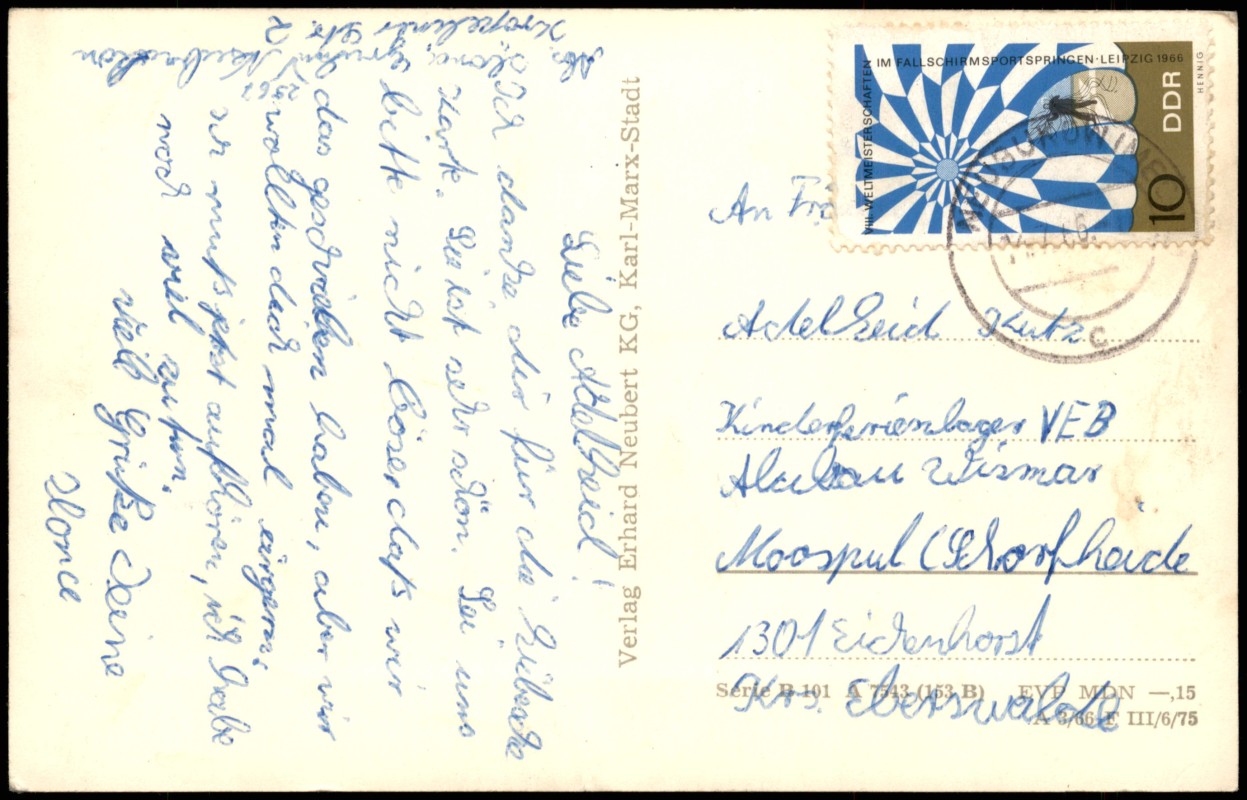 Liebe Adelheid!
Ich danke dir für die hübsche
Karte. Sei ist sehr schön. Sei uns
bitte nicht böse daß wir
das geschrieben haben, aber wir
wollten dich mal ärgern.
Ich muß jetzt aufhören, ich habe
noch viel zu tun.
Viele Grüße Deine
2561
Verlag Erhard Neubert KG, Karl-Marx-Stadt
VIII. WELTMEISTERSCHAFTEN
IM FALLSCHIRMSPORTSPRINGEN · LEIPZIG 1966
DDR
10
HENNIG
c
An
Adelheid Kutz
Kinderferienlager VEB
Wismar
(Schorfheide
1301 Eichenhorst
Krs. Eberswalde
Serie B 101 A 7543 (153 B) EVP MDN —,15
A 3/66 F III/6/75